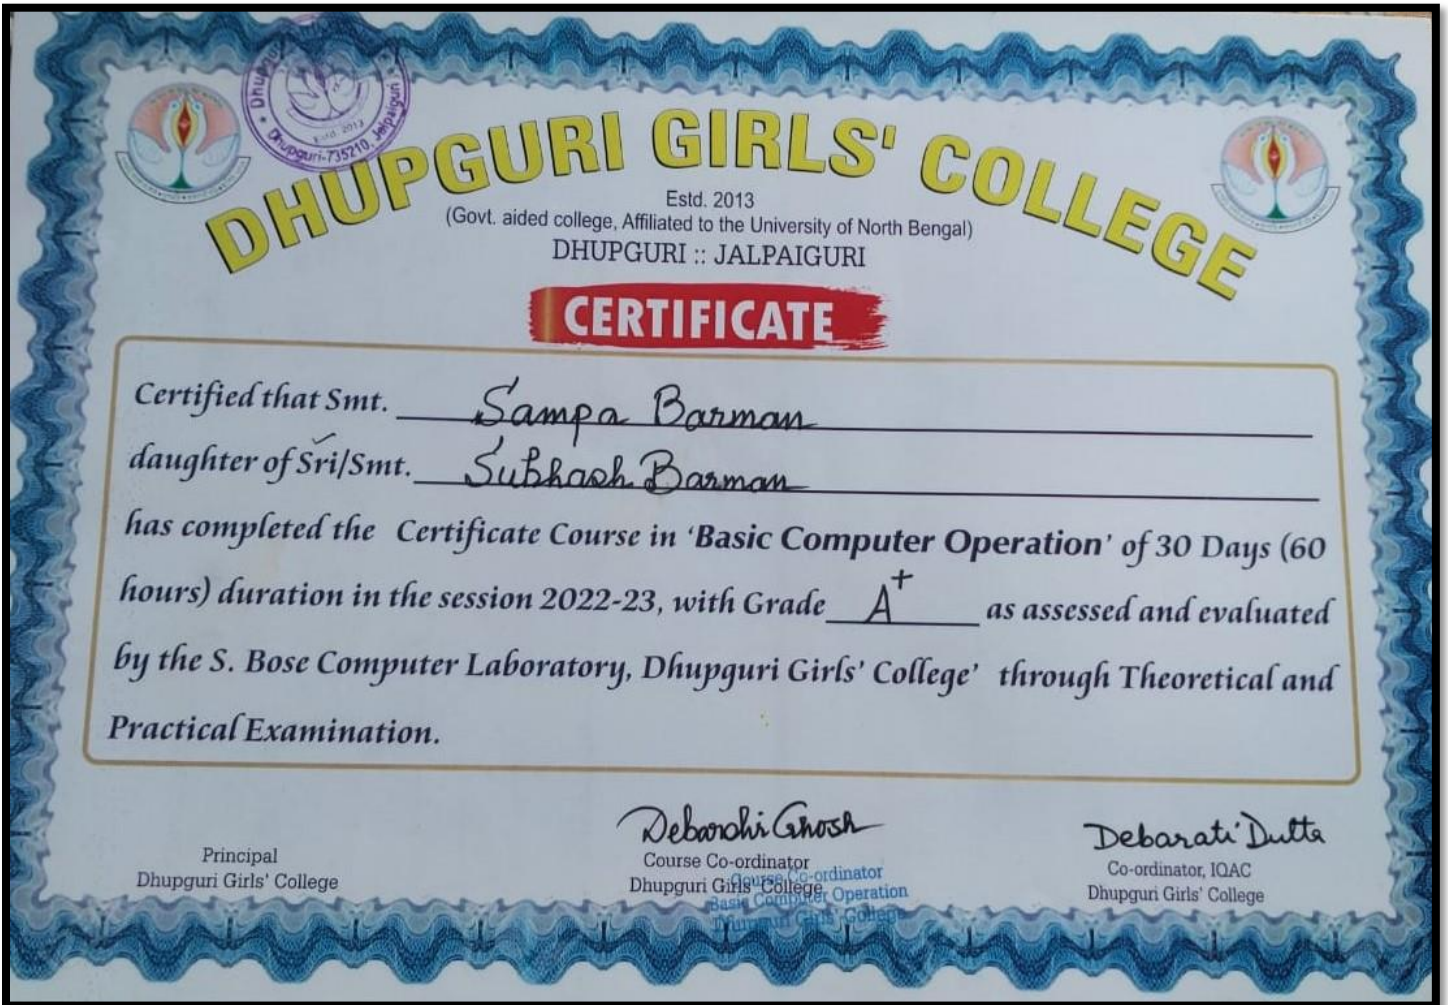 Dhupguri-735210, Jalpaiguri
Estd. 2013
DHUPGURI GIRLS' COLLEGE
Estd. 2013
(Govt. aided college, Affiliated to the University of North Bengal)
DHUPGURI :: JALPAIGURI
CERTIFICATE
Certified that Smt. Sampa Barman
daughter of Sri/Smt. Subhash Barman
has completed the Certificate Course in 'Basic Computer Operation' of 30 Days (60
hours) duration in the session 2022-23, with Grade A+ as assessed and evaluated
by the S. Bose Computer Laboratory, Dhupguri Girls' College' through Theoretical and
Practical Examination.
Principal
Dhupguri Girls' College
Debarshi Ghosh
Course Co-ordinator
Dhupguri Girls' College
Course Co-ordinator
Basic Computer Operation
Dhupguri Girls' College
Debarati Dutta
Co-ordinator, IQAC
Dhupguri Girls' College